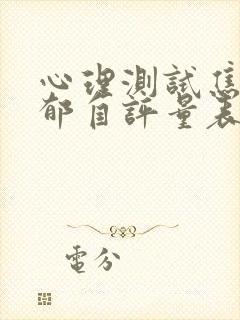 心理測試焦
郁自評量表
電分